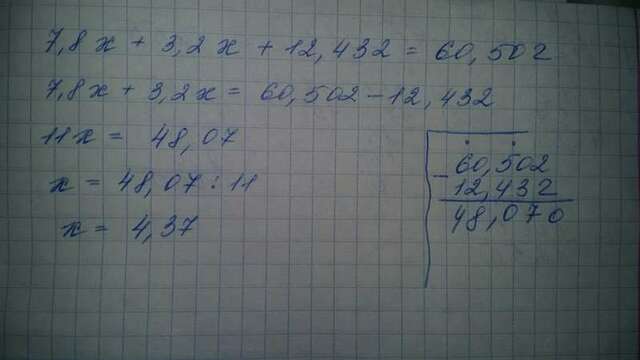 7,8x + 3,2x + 12,432 = 60,502
7,8x + 3,2x = 60,502 - 12,432
11x = 48,07
x = 48,07 : 11
x = 4,37
- 60,502
12,432
48,070